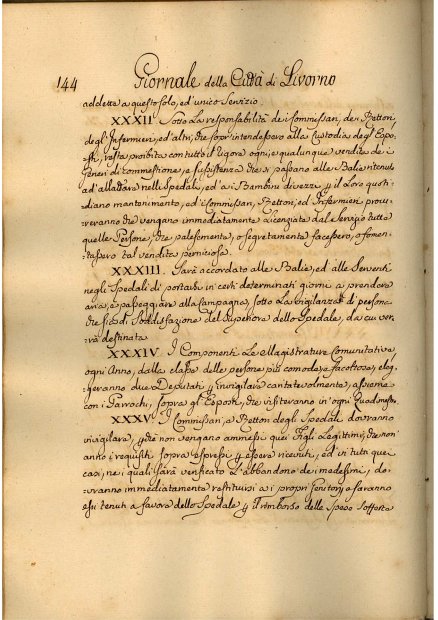 144 Giornale della Città di Livorno
addetta a questo solo, ed' unico Servizio.
XXXII. Sotto La responsabilità de i Commissari, de i Rettori,
degl' Infermieri, ed altri, che sopr' intendessero alla Custodia degl' Espo-
sti, resta proibita con tutto il rigore ogni, e qualunque vendita de i
generi di Commestione, e sussistenza che si passano alle Balie tenute
ad' allattare nelli Spedali, ed' a i Bambini divezzi p il Loro quoti-
diano mantenimento, ed' i Commissari, Rettori, ed Infermieri procu-
reranno che vengano immediatamente Licenziate dal Servizio tutte
quelle Persone, che palesemente, o segretamente facessero, o fomen-
tassero tal vendita perniciosa.
XXXIII. Sarà accordato alle Balie, ed alle Serventi
negli Spedali di portarsi in certi determinati giorni a prendere
aria, e passeggiare alla Campagna, sotto La vigilanza di persona
che sia di Soddisfazione del Superiore dello Spedale, da cui ver-
rà destinata.
XXXIV. I Componenti Le Magistrature Comunitative
ogni Anno, dalla classe delle persone più comode, e facoltose, eleg-
geranno due Deputati p invigilare caritatevolmente, assieme
con i Parrochi, sopra gl' Esposti, che esisteranno in' ogni
XXXV. I Commissari, e Rettori degli Spedali dovranno
invigilare, p che non vengano ammessi quei Figli Legittimi, che non'
anno i requisiti sopra espressi p essere ricevuti, ed' in tutti quei
casi, ne i quali sarà verificato L' abbandono de i medesimi, do-
vranno immediatamente restituirsi a i propri Genitori, e saranno
essi tenuti a favore dello Spedale p il rimborso delle Spese sofferte